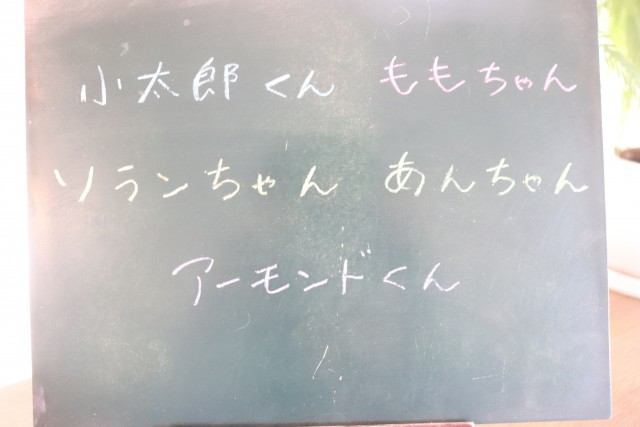 小太郎くん ももちゃん
ソランちゃん あんちゃん
アーモンドくん